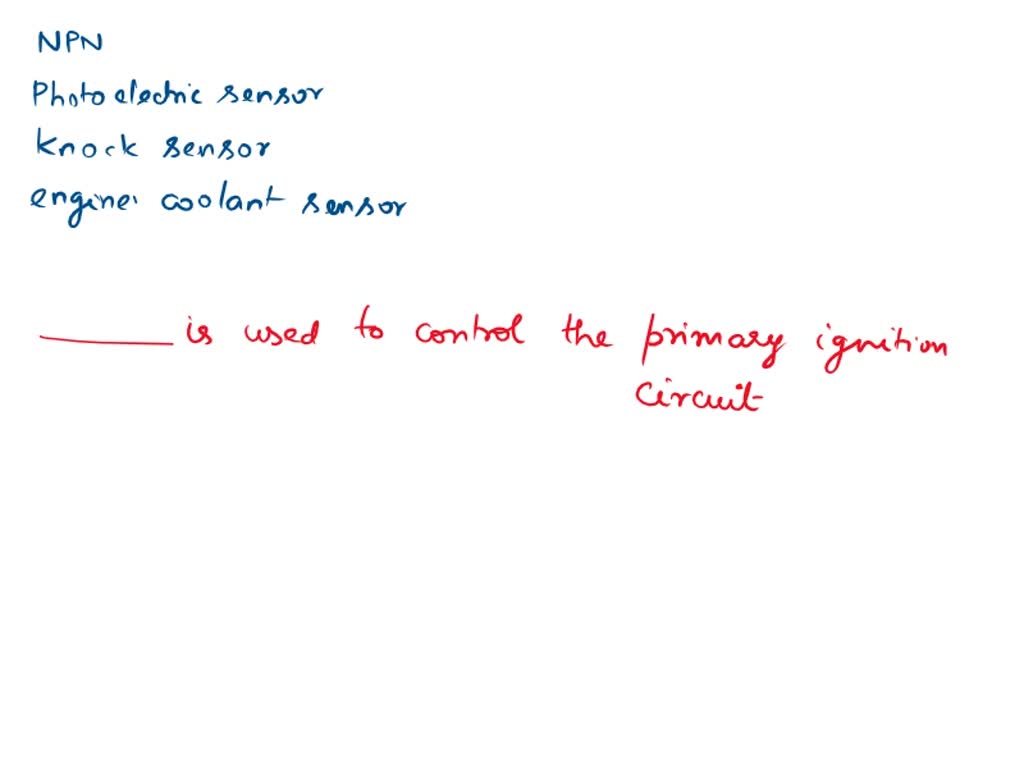 NPN
Photo electric sensor
Knock sensor
engine coolant sensor
_______ is used to control the primary ignition
circuit